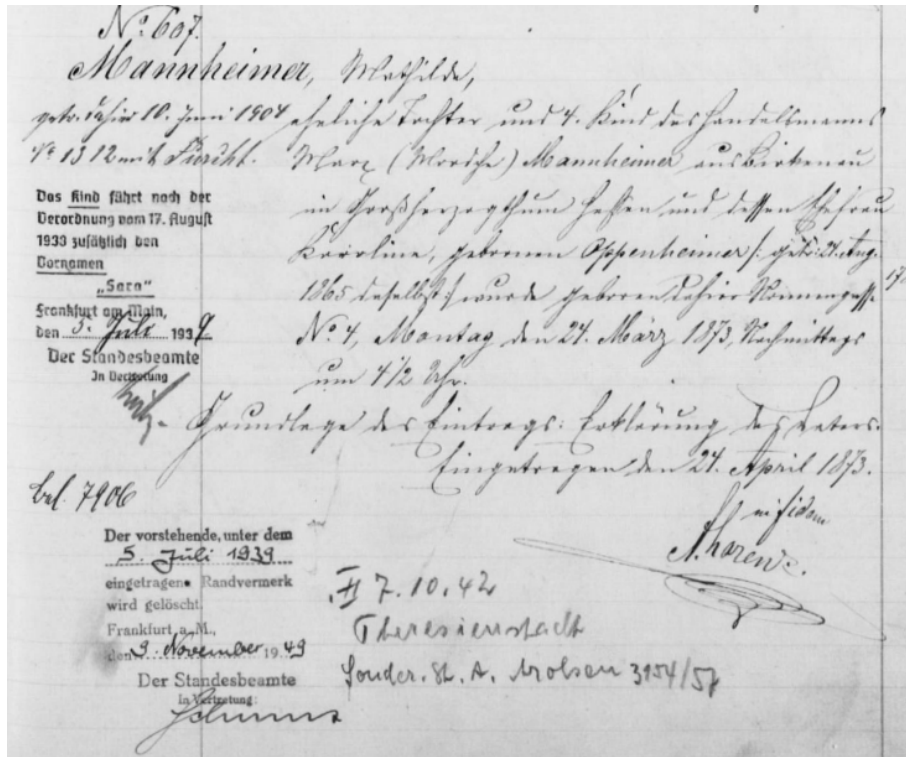 No. 607.
Mannheimer, Mathilde,
getr. dahier 10. Juni 1904
No 1312 mit Furcht.
eheliche Tochter und 4. Kind des Handelsmanns
Marx (Mordche) Mannheimer aus Birkenau
im Großherzogthum Hessen und dessen Ehefrau
Karoline, gebornen Oppenheimer /: getr: 21. Aug.
1865 daselbst :/ wurde geboren dahier
No. 4, Montag den 24. März 1873, Nachmittags
um 4 1/2 Uhr.
Grundlage des Eintrags: Erklärung des Vaters.
Eingetragen den 24. April 1873.
in fidem
Das Kind führt nach der
Verordnung vom 17. August
1938 zusätzlich den
Vornamen
„Sara"
Frankfurt am Main,
den 5. Juli 1939
Der Standesbeamte
In Vertretung
bel. 7906
Der vorstehende, unter dem
5. Juli 1939
eingetragene Randvermerk
wird gelöscht.
Frankfurt a. M.,
den 9. November 1949
Der Standesbeamte
In Vertretung:
7.10.42
Theresienstadt
Sonder. St. A. Arolsen 3954/57